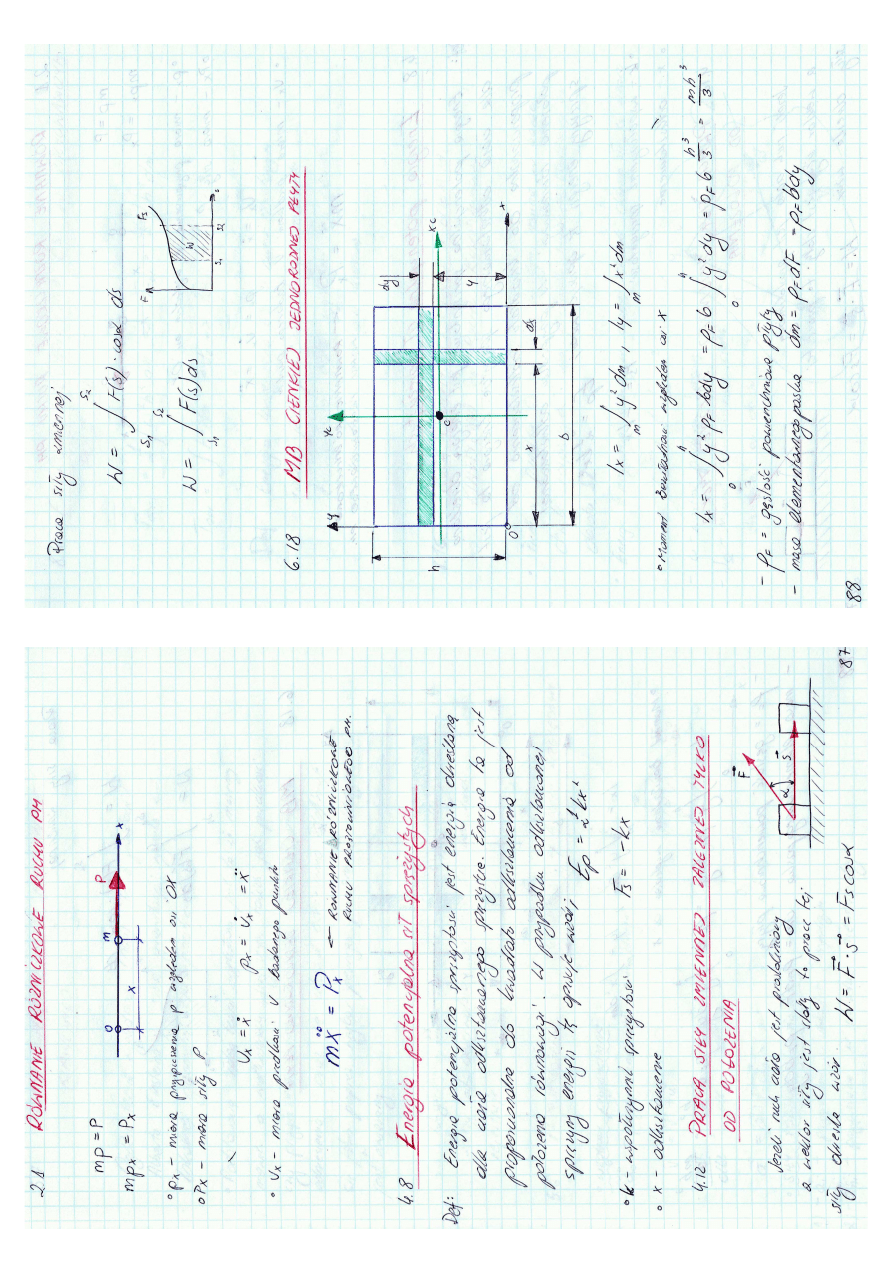 2.1 RÓWNANIE RÓŻNICZKOWE RUCHU PM
O m P x
x
mp = P
mpx = Px
° px - miara przyspieszenia p względem osi OX
° Px - miara siły P
Ux = ẋ px = U̇x = ẍ
° Ux - miara prędkości U badanego punktu
mẍ = Px ← RÓWNANIE RÓŻNICZKOWE
RUCHU PROSTOLINIOWEGO PM.
4.8 Energia potencjalna sił sprężystych
Def: Energia potencjalna sprężystości jest energią określoną
dla ciała odkształcanego sprężyście. Energia ta jest
proporcjonalna do kwadratu odkształcenia od
położenia równowagi. W przypadku odkształconej
sprężyny energię tę opisuje wzór; Ep = ½kx²
° k - współczynnik sprężystości Fs = -kx
° x - odkształcenie
4.12 PRACA SIŁY ZMIENNEJ ZALEŻNEJ TYLKO
OD POŁOŻENIA
Jeżeli ruch ciała jest prostoliniowy
a wektor siły jest stały to pracę tej
siły określa wzór. W = F⃗ · s⃗ = Fs cosα
F⃗ α s⃗
87
Praca siły zmiennej
W = ∫ F(s) · cosα ds
S1 S2
W = ∫ F(s) ds
S1 S2
F Fs W S1 S2 s
6.18 MB CIENKIEJ JEDNORODNEJ PŁYTY
y yc dy
h C xc y
O x dx x
b
Ix = ∫ y² dm , Iy = ∫ x² dm
m m
° Moment bezwładności względem osi x
Ix = ∫ y² ρF b dy = ρF b ∫ y² dy = ρF b h³/3 = mh³/3
0 h 0 h
- ρF = gęstość powierzchniowa płyty
- masa elementarnego paska dm = ρF dF = ρF b dy
88